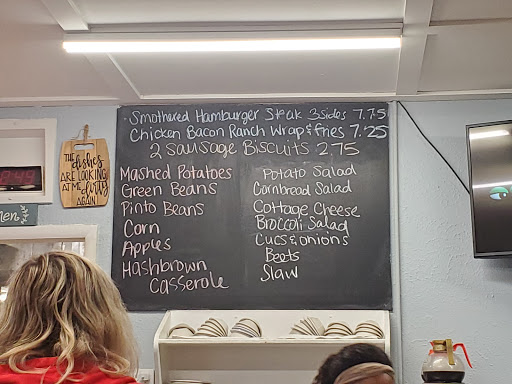 Smothered Hamburger Steak 3 sides 7.75
Chicken Bacon Ranch Wrap & fries 7.25
2 Sausage Biscuits 2.75
Mashed Potatoes
Green Beans
Pinto Beans
Corn
Apples
Hashbrown
Casserole
Potato Salad
Cornbread Salad
Cottage Cheese
Broccoli Salad
Cucs & onions
Beets
Slaw
THE
dishes
ARE LOOKING
AT ME dirty
AGAIN
men